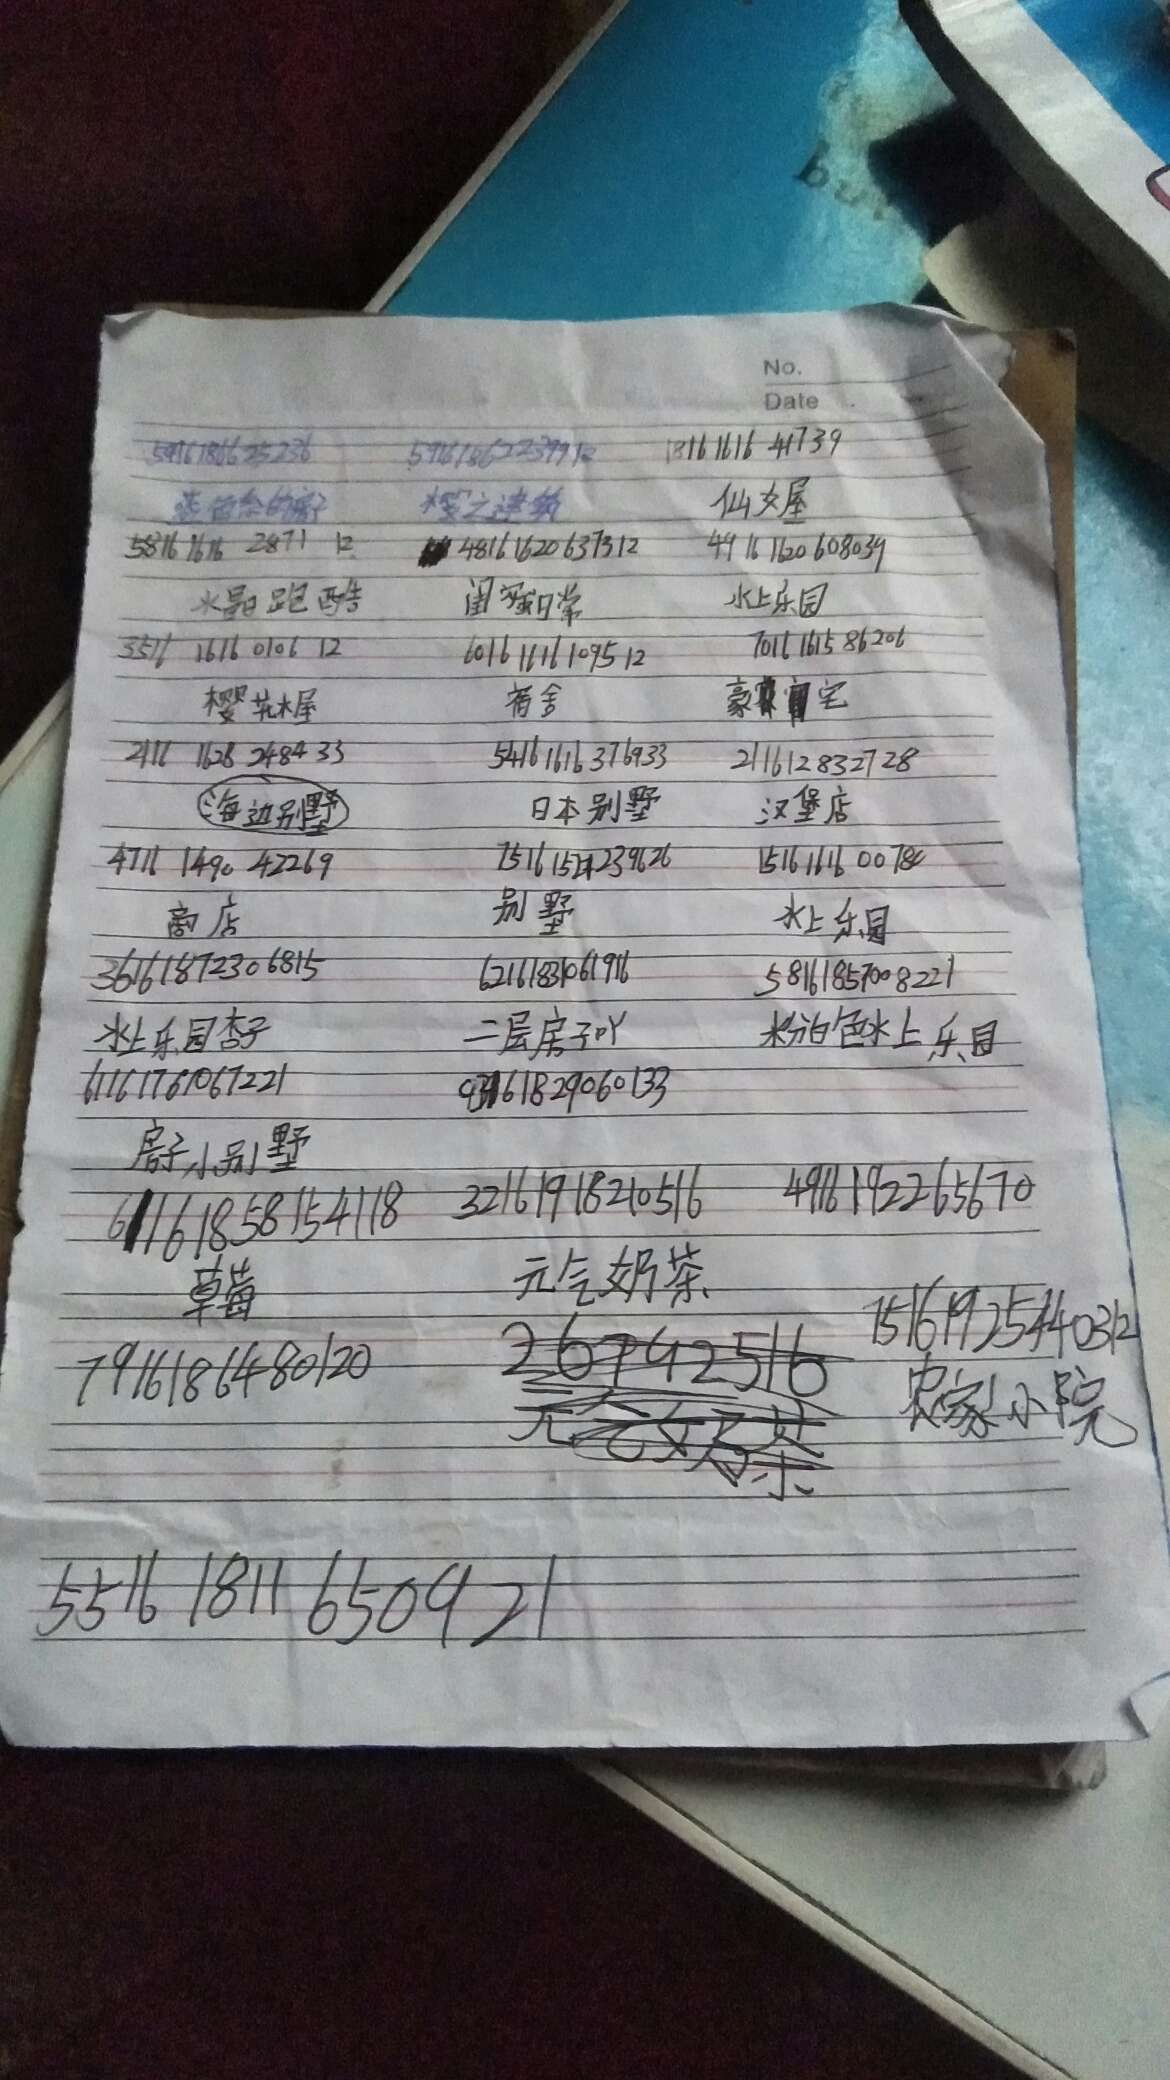 No.
Date
5916186625236 59161862239912 1816161641739
的房子 樱之建筑 仙女屋
58161616 2871 12 48161620637312 49161620608039
水晶跑酷 闺蜜日常 水上乐园
3516 1616 0106 12 60161616109512 7016161586206
樱花木屋 宿舍 豪宅
2116 1628 248433 54161616376933 211612832728
海边别墅 日本别墅 汉堡店
4716 1490 42269 239626 15161616 0078
商店 别墅 水上乐园
36161872306815 62161831061916 58161857008221
水上乐园杏子 二层房子吖 粉白色水上乐园
61161761067221 161829060133
房子小别墅
61161858154118 32161918210516 4916192265670
草莓 元气奶茶
7916186480120 267942516 75161925440312
元气奶茶 农家小院
5516 1811 650921